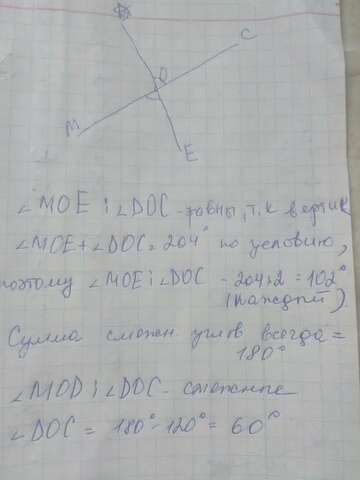 C
O
M
E
∠MOE i ∠DOC - равны, т.к вертик
∠MOE + ∠DOC = 204° по условию,
поэтому ∠MOE i ∠DOC - 204:2 = 102°
(каждый).
Сумма смежн углов всегда =
180°
∠MOD i ∠DOC - смежные
∠DOC = 180° - 120° = 60°